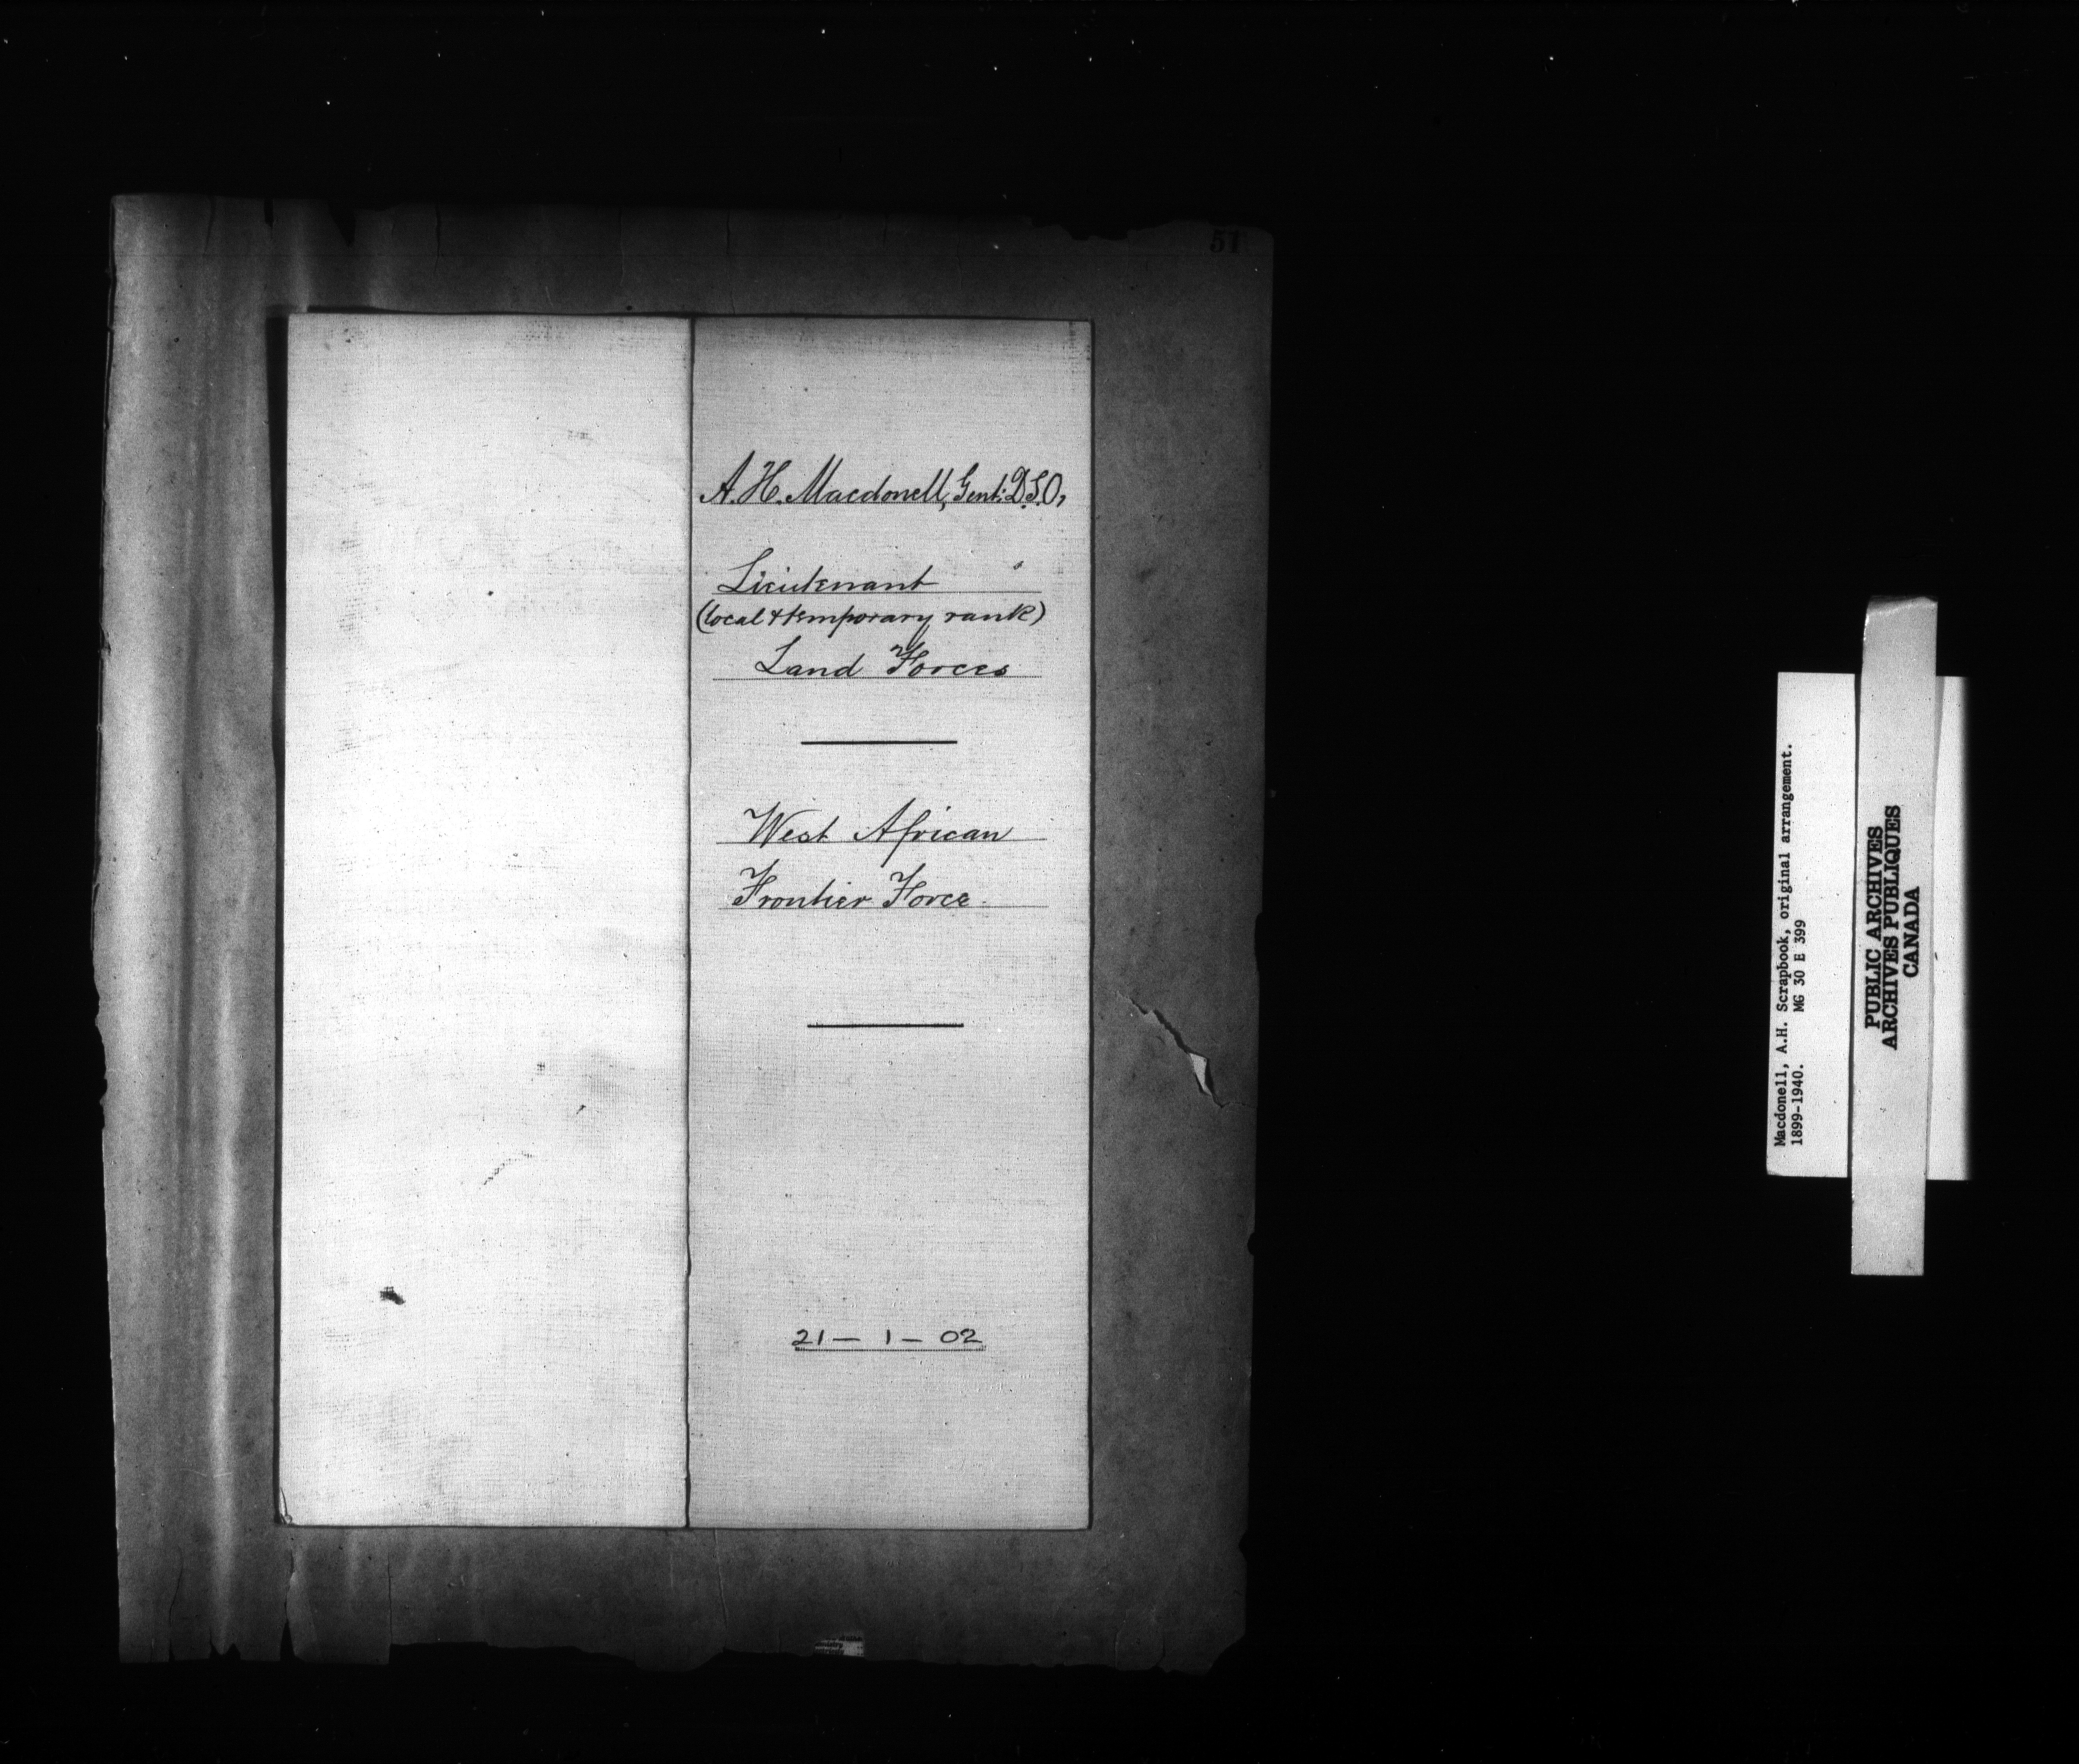 57
A. H. Macdonell, Gent: D.S.O,
Lieutenant
(local & temporary rank)
Land Forces
West African
Frontier Force.
21 - 1 - 02
Macdonell, A.H. Scrapbook, original arrangement.
1899-1940. MG 30 E 399
PUBLIC ARCHIVES
ARCHIVES PUBLIQUES
CANADA